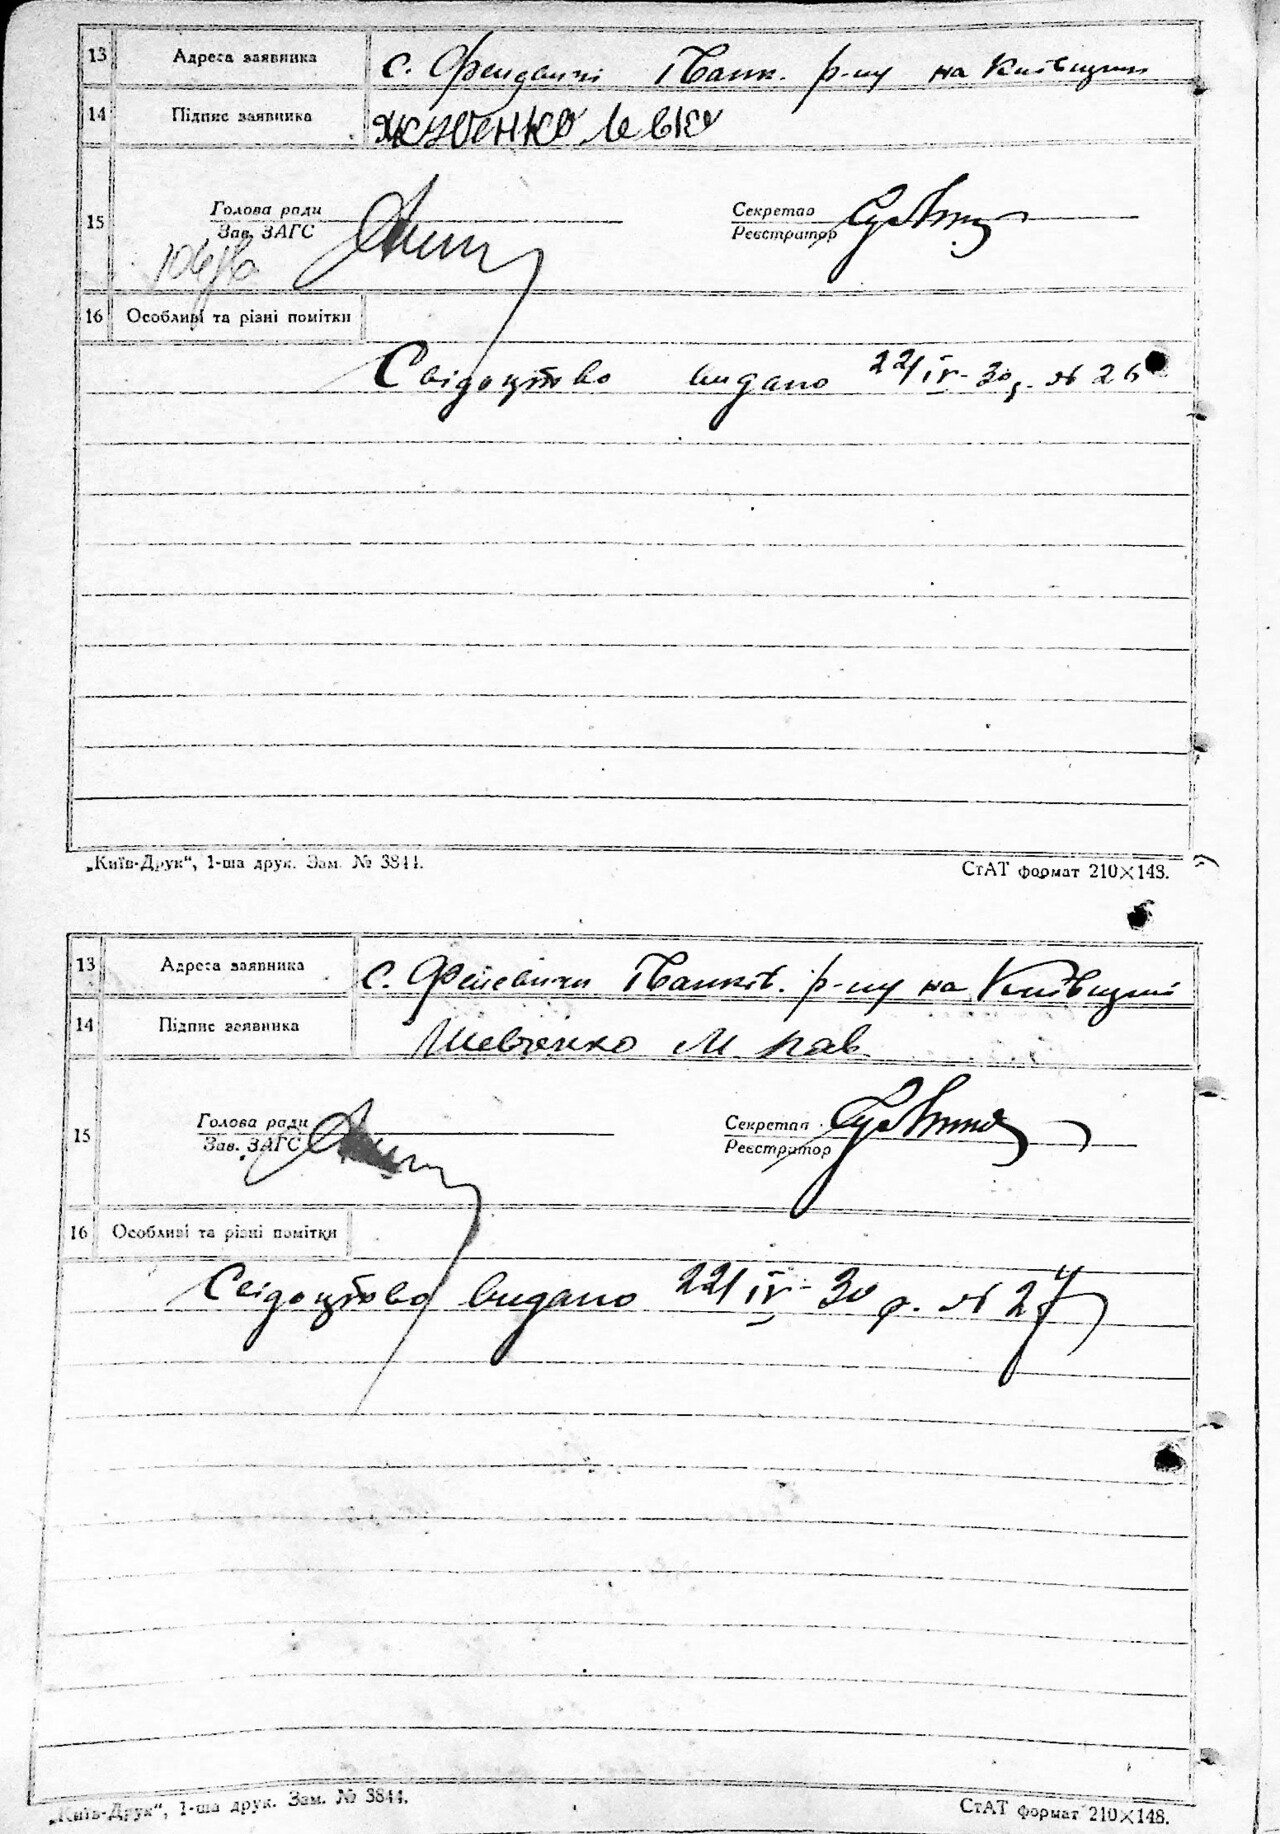 13 Адреса заявника с. Феневичі Іванк. р-ну на Київщині
14 Підпис заявника Левко
Голова ради Секретар
15 Зав. ЗАГС Реєстратор
16 Особливі та різні помітки
Свідоцтво видано 22/IV-30 р. № 26
„Київ-Друк“, 1-ша друк. Зам. № 3844. СтАТ формат 210×148.
13 Адреса заявника с. Феневичи Іванків. р-ну на Київщині
14 Підпис заявника Шевченко М. Пав.
Голова ради Секретар
15 Зав. ЗАГС Реєстратор
16 Особливі та різні помітки
Свідоцтво видано 22/IV-30 р. № 27
„Київ-Друк“, 1-ша друк. Зам. № 3844. СтАТ формат 210×148.